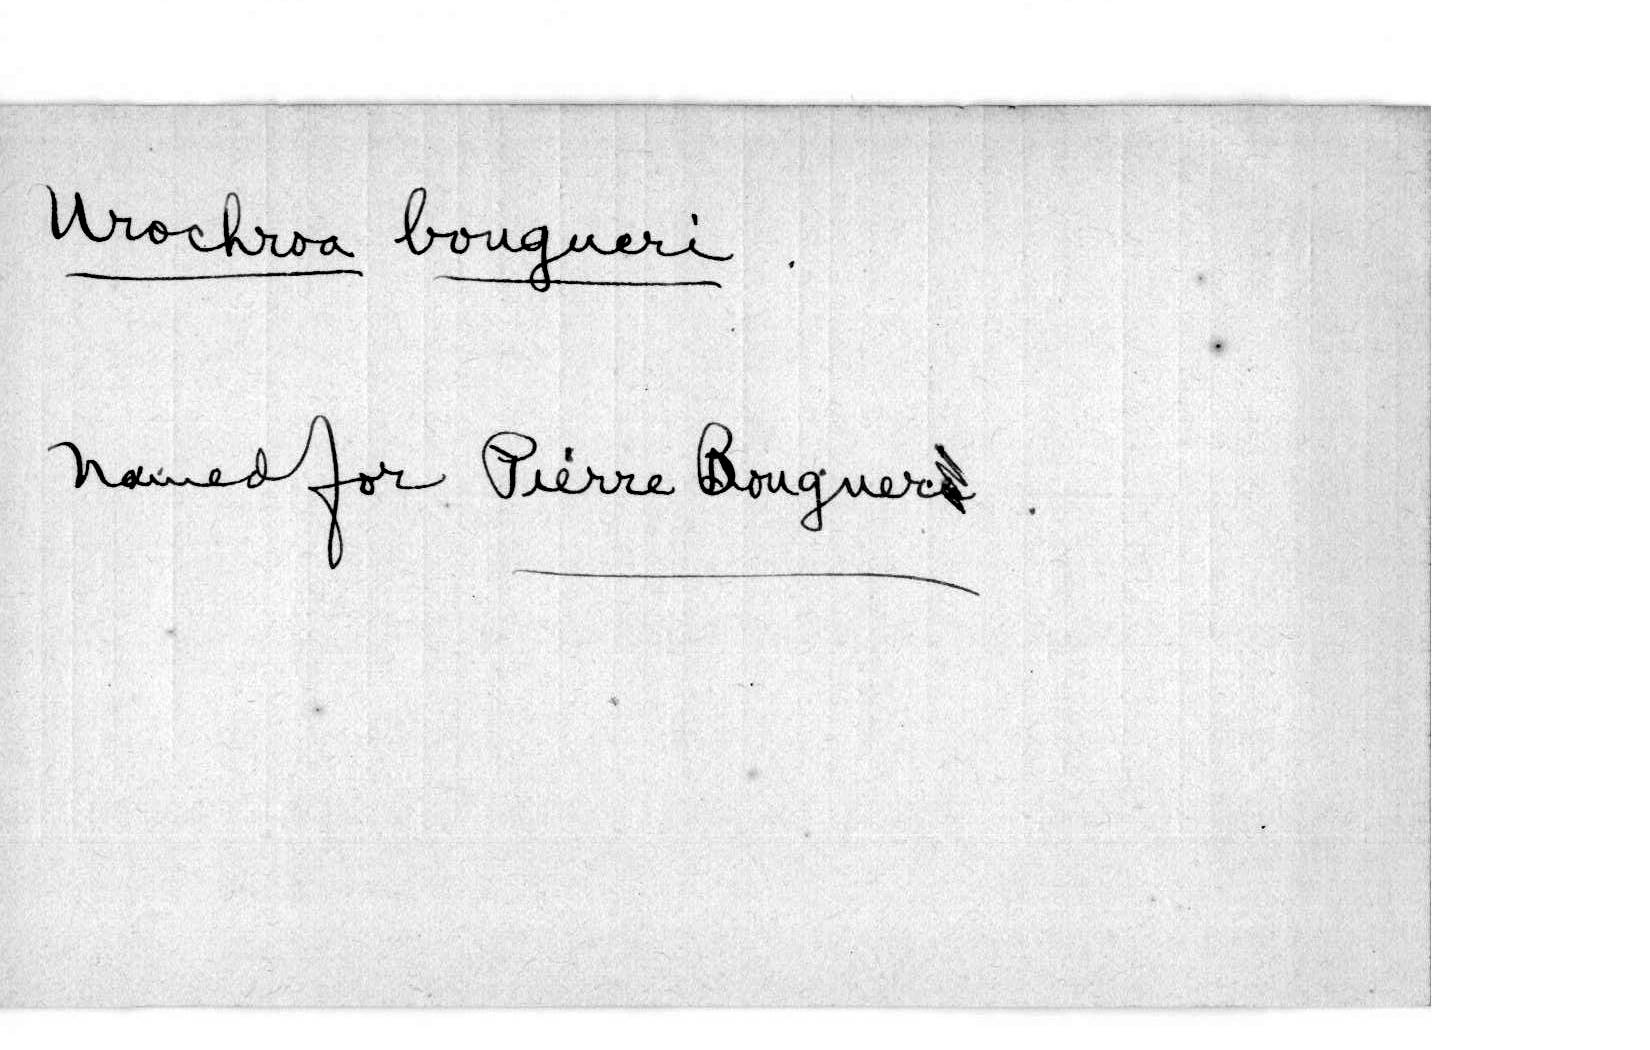 Urochroa bougueri.
Named for Pierre Bouguer.